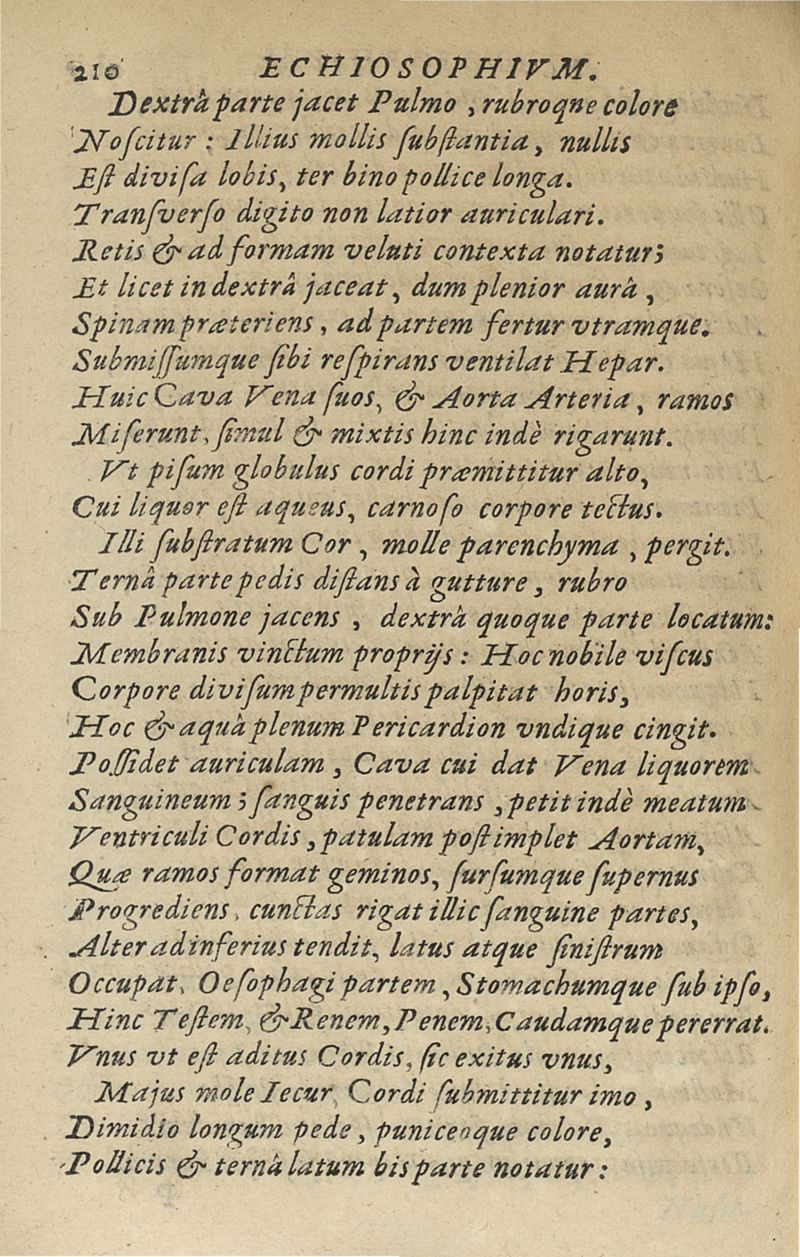 210 ECHIOSOPHIVM.
Dextrâ parte jacet Pulmo , rubroqne colore
Noſcitur : Illius mollis ſubſtantia, nullis
Eſt diviſa lobis, ter bino pollice longa.
Tranſverſo digito non latior auriculari.
Retis & ad formam veluti contexta notatur;
Et licet in dextrâ jaceat, dum plenior aurâ ,
Spinam præteriens , ad partem fertur vtramque.
Submiſſumque ſibi reſpirans ventilat Hepar.
Huic Cava Vena ſuos, & Aorta Arteria , ramos
Miſerunt, ſimul & mixtis hinc indè rigarunt.
Vt piſum globulus cordi præmittitur alto,
Cui liquor eſt aqueus, carnoſo corpore tectus.
Illi ſubſtratum Cor , molle parenchyma , pergit.
Ternâ parte pedis diſtans à gutture , rubro
Sub Pulmone jacens , dextrà quoque parte locatum:
Membranis vinctum proprijs : Hoc nobile viſcus
Corpore diviſum permultis palpitat horis,
Hoc & aquâ plenum Pericardion vndique cingit.
Poſſidet auriculam , Cava cui dat Vena liquorem
Sanguineum ; ſanguis penetrans , petit indè meatum
Ventriculi Cordis , patulam poſt implet Aortam,
Quæ ramos format geminos, ſurſumque ſupernus
Progrediens, cunctas rigat illic ſanguine partes,
Alter ad inferius tendit, latus atque ſiniſtrum
Occupat, Oeſophagi partem , Stomachumque ſub ipſo,
Hinc Teſtem, & Renem, Penem, Caudamque pererrat.
Vnus vt eſt aditus Cordis, ſic exitus vnus,
Majus mole Iecur, Cordi ſubmittitur imo ,
Dimidio longum pede , puniceoque colore,
Pollicis & ternâ latum bis parte notatur :